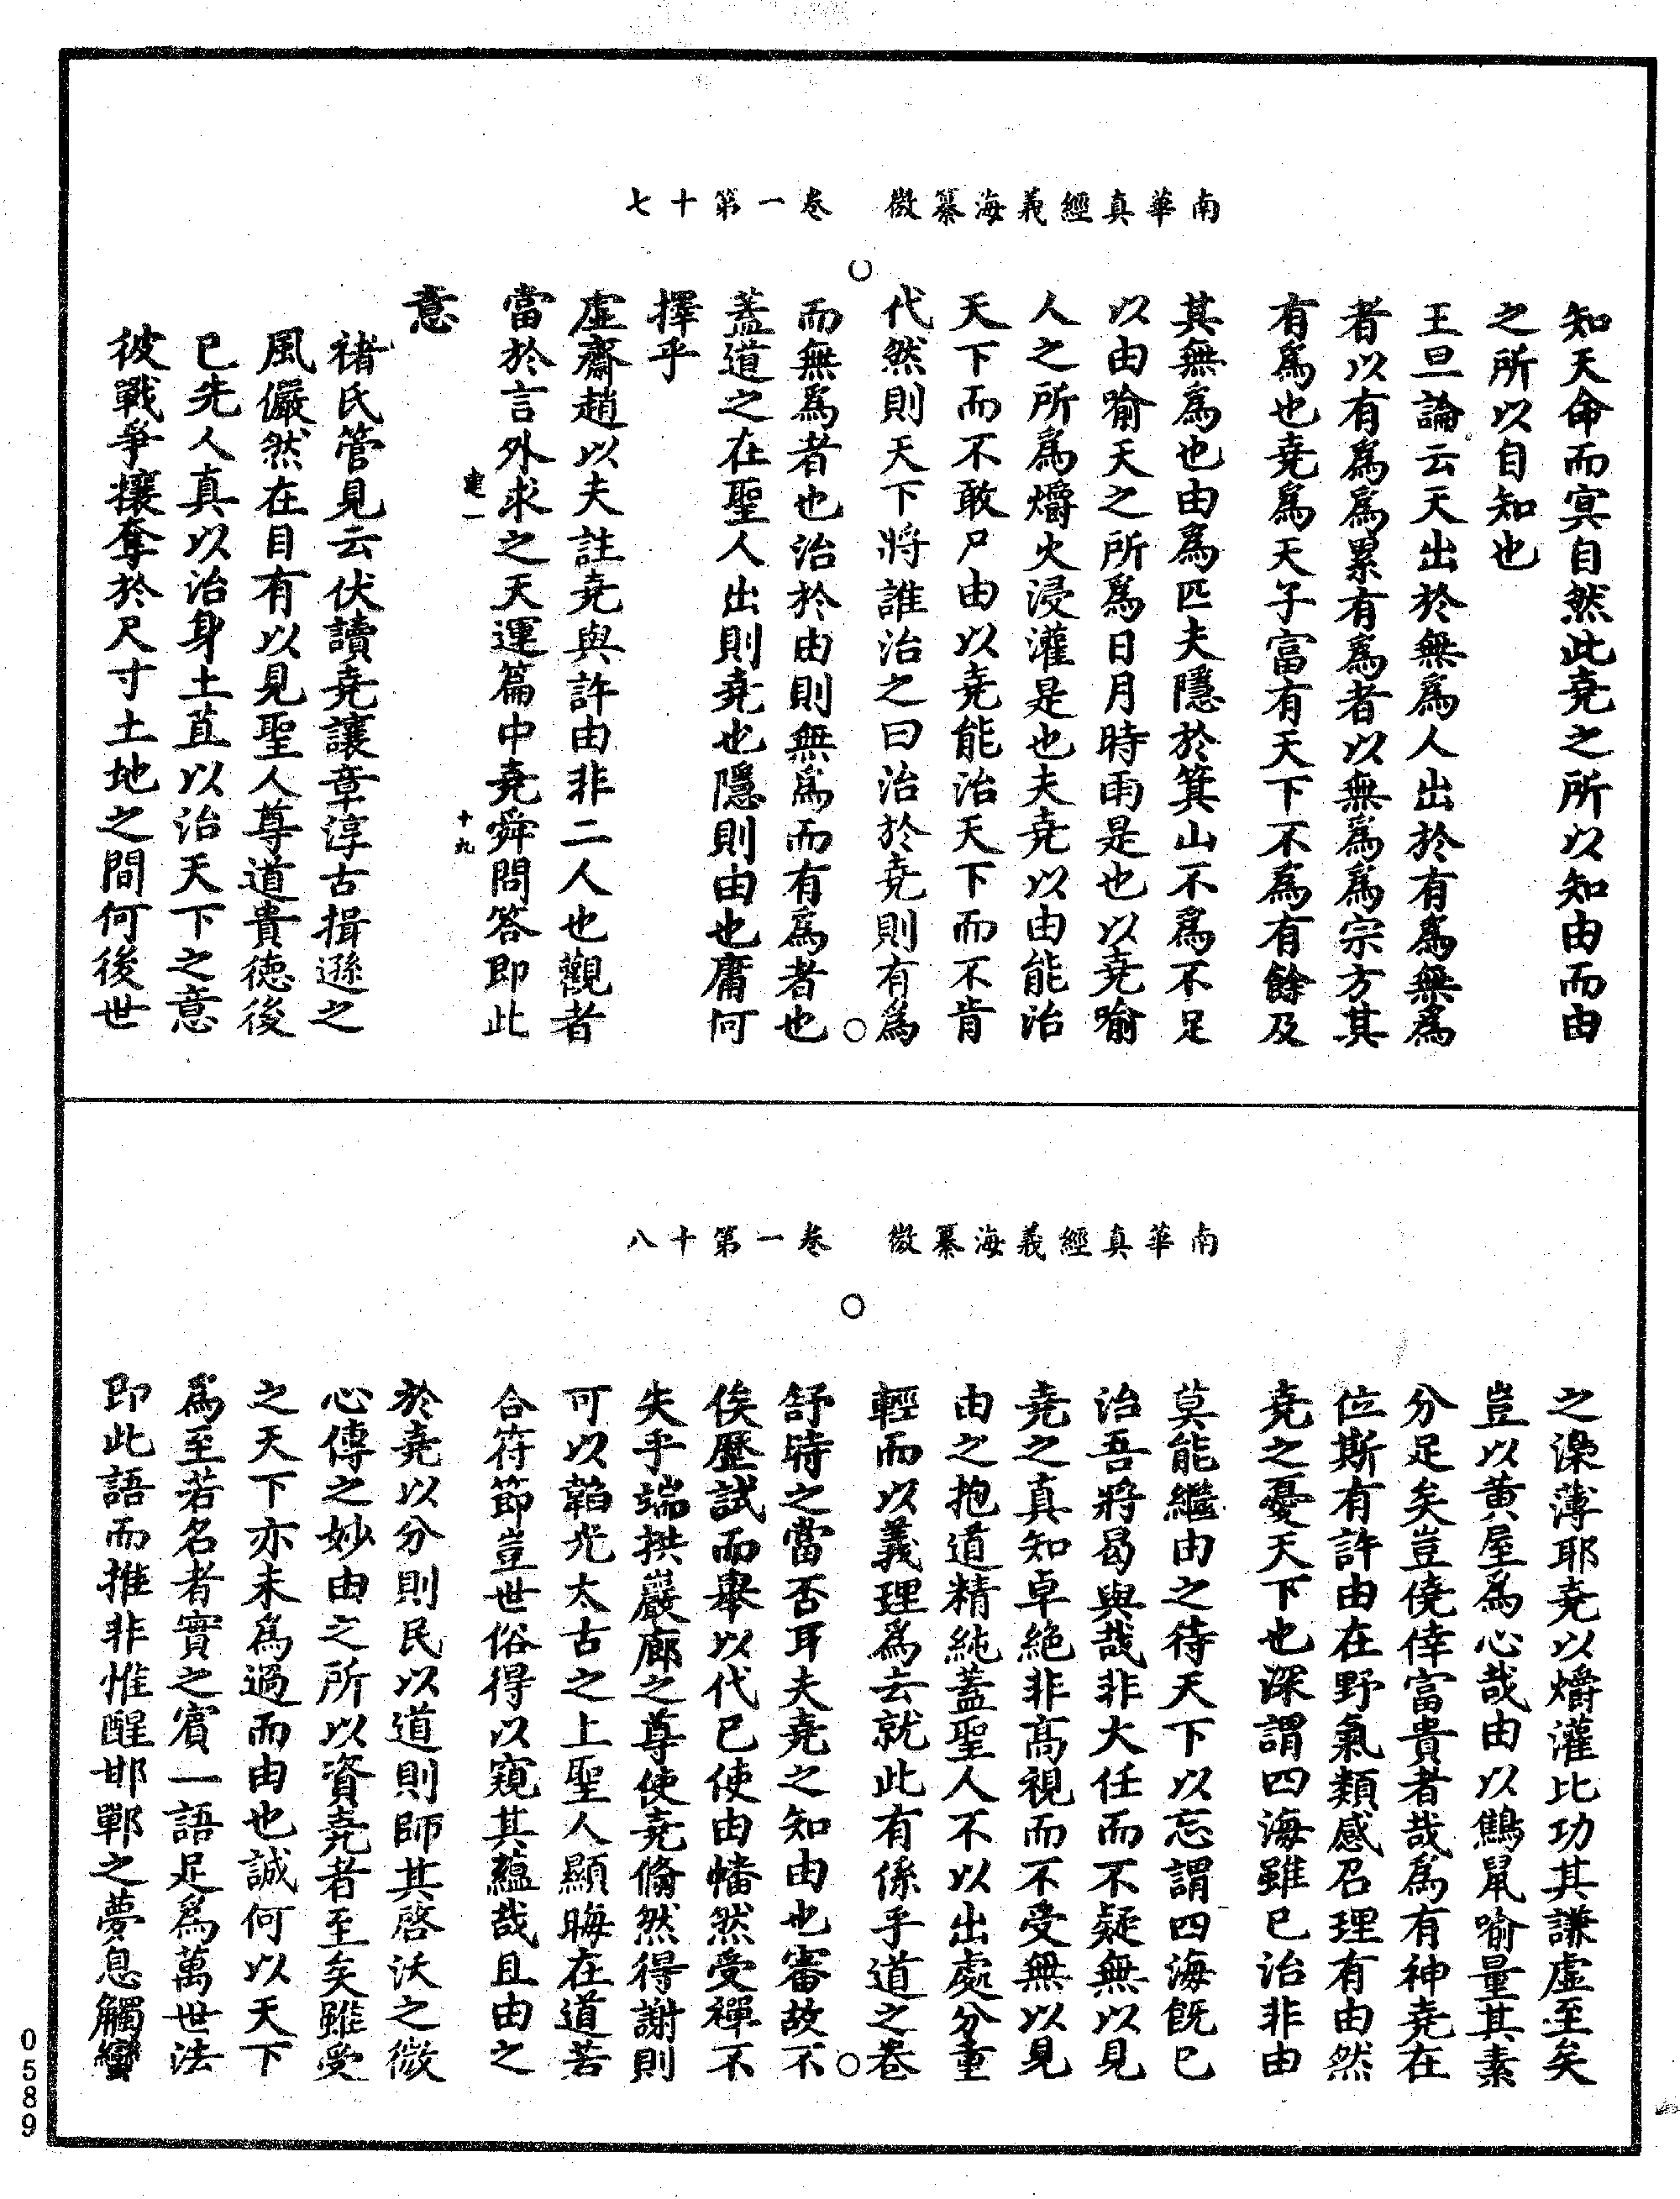 南華真經義海纂微　卷一第十七
知天命而冥自然此堯之所以知由而由
之所以自知也
王旦論云天出於無為人出於有為無為
者以有為為累有為者以無為為宗方其
有為也堯為天子富有天下不為有餘及
其無為也由為匹夫隱於箕山不為不足
以由喻天之所為日月時雨是也以堯喻
人之所為爝火浸灌是也夫堯以由能治
天下而不敢尸由以堯能治天下而不肯
代然則天下將誰治之曰治於堯則有為
而無為者也治於由則無為而有為者也
蓋道之在聖人出則堯也隱則由也庸何
擇乎
虛齋趙以夫註堯與許由非二人也觀者
當於言外求之天運篇中堯舜問答即此
建一　十九
意
褚氏管見云伏讀堯讓章淳古揖遜之
風儼然在目有以見聖人尊道貴德後
已先人真以治身土苴以治天下之意
彼戰爭攘奪於尺寸土地之間何後世
南華真經義海纂微　卷一第十八
之澡薄耶堯以爝灌比功其謙虛至矣
豈以黃屋為心哉由以鷦鼠喻量其素
分足矣豈僥倖富貴者哉為有神堯在
位斯有許由在野氣類感召理有由然
堯之憂天下也深謂四海雖已治非由
莫能繼由之待天下以忘謂四海既已
治吾將曷與哉非大任而不疑無以見
堯之真知卓絕非高視而不受無以見
由之抱道精純蓋聖人不以出處分重
輕而以義理為去就此有係乎道之卷
舒時之當否耳夫堯之知由也審故不
俟歷試而舉以代已使由幡然受禪不
失乎端拱巖廊之尊使堯脩然得謝則
可以韜光太古之上聖人顯晦在道若
合符節豈世俗得以窺其蘊哉且由之
於堯以分則民以道則師其啓沃之微
心傳之妙由之所以資堯者至矣雖受
之天下亦未為過而由也誠何以天下
為至若名者實之賓一語足為萬世法
即此語而推非惟醒邯鄲之夢息觸蠻
0589